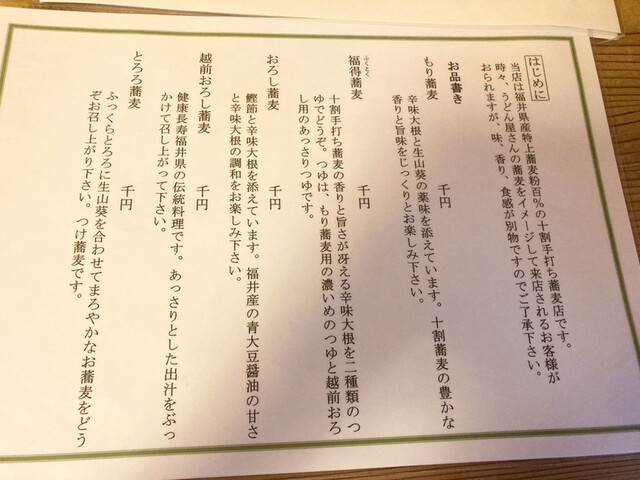 はじめに
当店は福井県産特上蕎麦粉百％の十割手打ち蕎麦店です。
時々、うどん屋さんの蕎麦をイメージして来店されるお客様が
おられますが、味、香り、食感が別物ですのでご了承下さい。
お品書き
もり蕎麦　千円
辛味大根と生山葵の薬味を添えています。十割蕎麦の豊かな
香りと旨味をじっくりとお楽しみ下さい。
ふくとく
福得蕎麦　千円
十割手打ち蕎麦の香りと旨さが冴える辛味大根を二種類のつ
ゆでどうぞ。つゆは、もり蕎麦用の濃いめのつゆと越前おろ
し用のあっさりつゆです。
おろし蕎麦　千円
鰹節と辛味大根を添えています。福井産の青大豆醤油の甘さ
と辛味大根の調和をお楽しみ下さい。
越前おろし蕎麦　千円
健康長寿福井県の伝統料理です。あっさりとした出汁をぶっ
かけて召し上がって下さい。
とろろ蕎麦　千円
ふっくらとろろに生山葵を合わせてまろやかなお蕎麦をどう
ぞお召し上がり下さい。つけ蕎麦です。